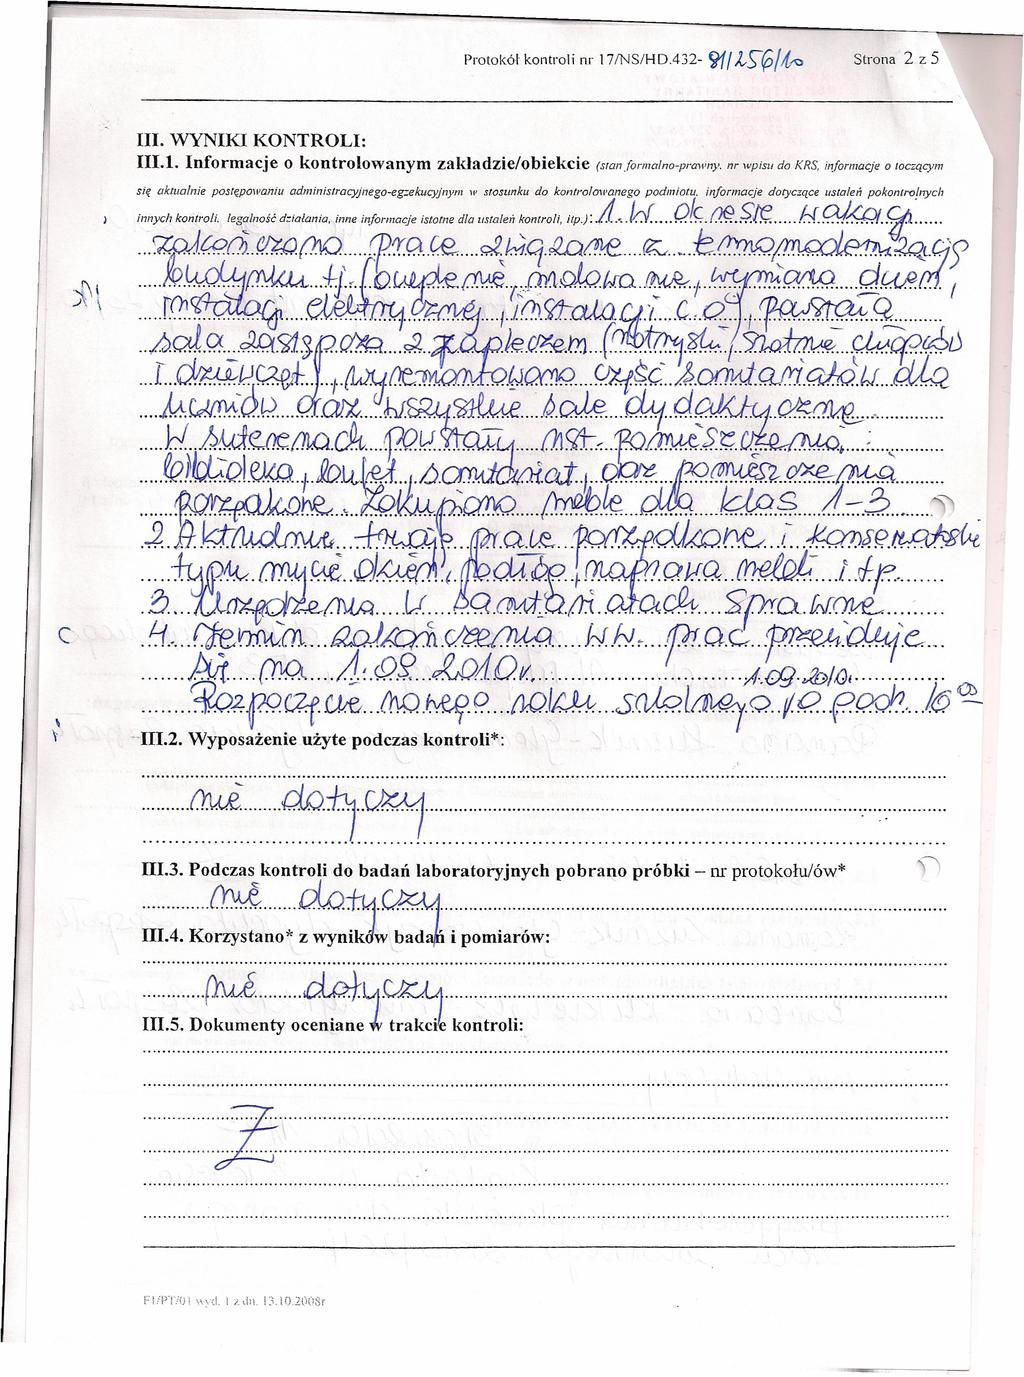 Protokół kontroli nr 17/NS/HD.432- 81/256/10 Strona 2 z 5
III. WYNIKI KONTROLI:
III.1. Informacje o kontrolowanym zakładzie/obiekcie (stan formalno-prawny, nr wpisu do KRS, informacje o toczącym
się aktualnie postępowaniu administracyjnego-egzekucyjnym w stosunku do kontrolowanego podmiotu, informacje dotyczące ustaleń pokontrolnych
innych kontroli, legalność działania, inne informacje istotne dla ustaleń kontroli, itp.): 1. W okresie wakacji
zakończono prace związane z termomodernizacją
budynku tj. (ocieplenie, malowanie, wymiana okien,
instalacji elektrycznej, instalacji c.o), powstała
sala zastępcza z zapleczem (natryski, szatnie chłopców
i dziewcząt), wyremontowano część sanitariatów dla
uczniów oraz wszystkie sale dydaktyczne.
W suterenach powstały nst. pomieszczenia:
biblioteka, bufet, sanitariat, oraz pomieszczenia
porządkowe. Zakupiono meble dla klas 1-3
2. Aktualnie trwają prace porządkowe i konserwatorskie
typu mycie okien, podłóg, naprawa mebli itp.
3. Urządzenia w sanitariatach sprawne
4. Termin zakończenia ww. prac przewiduje
się na 1.09.2010r.
1.09.2010r
Rozpoczęcie nowego roku szkolnego o godz. 16⁰⁰
III.2. Wyposażenie użyte podczas kontroli*:
nie dotyczy
III.3. Podczas kontroli do badań laboratoryjnych pobrano próbki – nr protokołu/ów*
nie dotyczy
III.4. Korzystano* z wyników badań i pomiarów:
nie dotyczy
III.5. Dokumenty oceniane w trakcie kontroli:
Z
F1/PT/01 wyd. 1 z dn. 13.10.2008r